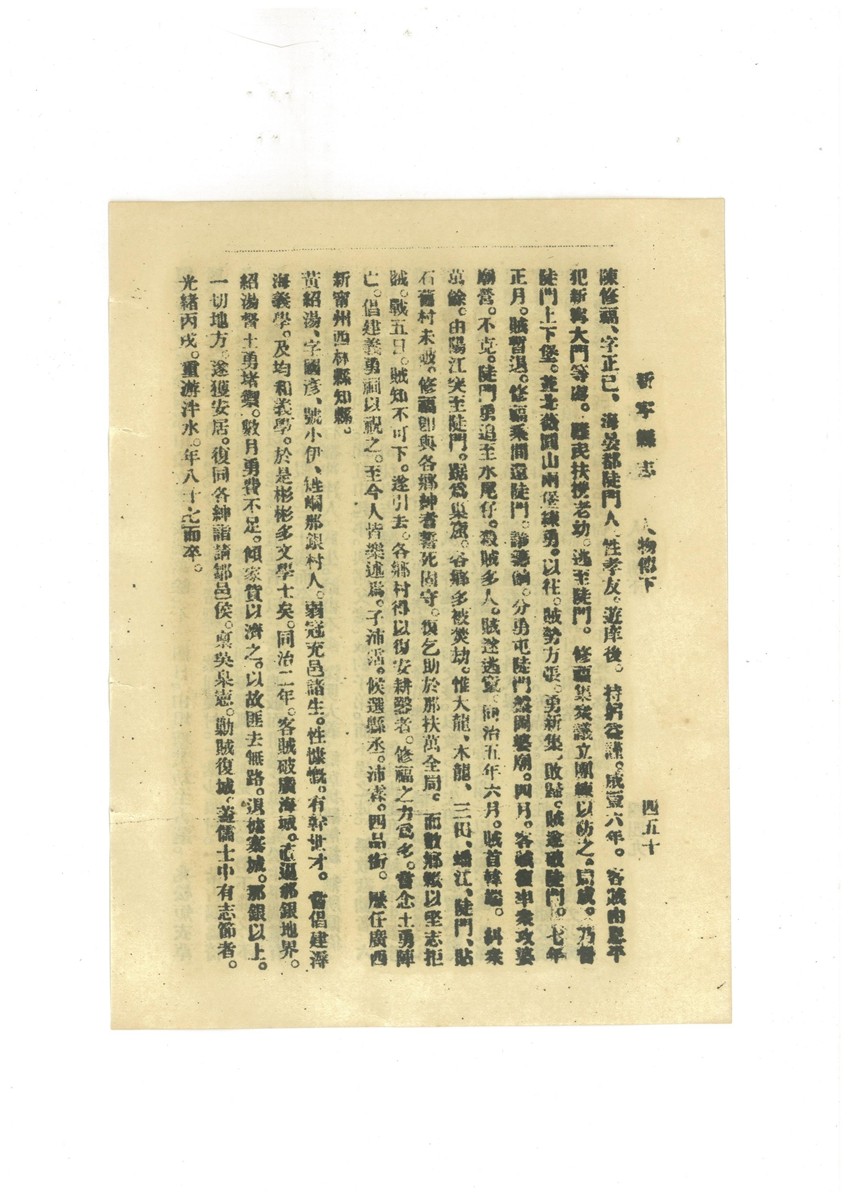 新寧縣志 人物傳下 四五十
陳修福、字正已、海晏都陡門人 性孝友。遊庠後。持躬益謹。咸豐六年。客賊由恩平
犯新寧大門等處。難民扶携老幼。逃至陡門。修福集衆議立團練以防之。局成。乃督
陡門上下堡。並北 圓山兩堡練勇。以往。賊勢方張。勇新集、敗歸。賊遂破陡門。七年
正月。賊暫退。修福乘間還陡門。籌 餉。分勇屯陡門 婆廟。四月。客賊 率衆攻婆
廟營。不克。陡門勇追至水尾仔。殺賊多人。賊遂逃竄。同治五年六月。賊首韓端。糾衆
萬餘。由陽江突至陡門。踞爲巢窟。各鄉多被焚劫。惟大龍、木龍、三 、蟠江、陡門、貼
石 村未破。修福卽與各鄉紳耆誓死固守。復乞助於那扶萬全局。而數鄉 以堅志拒
賊。戰五日。賊知不可下。遂引去。各鄉村得以復安耕鑿者。修福之力爲多。嘗念土勇陣
亡。倡建義勇祠以祝之。至今人皆樂述焉。子沛 。候選縣丞。沛霖。四品銜。歷任廣西
新甯州西林縣知縣。
黃紹湯、字國彥、號小伊、 峒那銀村人。弱冠充邑諸生。性慷慨。有幹世才。嘗倡建溽
海義學。及均和義學。於是彬彬多文學士矣。同治二年。客賊破廣海城。直逼那銀地界。
紹湯督土勇堵禦。數月勇費不足。傾家貲以濟之。以故匪去無路。退據寨城。那銀以上。
一切地方。遂獲安居。復同各紳詣請鄒邑侯。稟吳臬憲。勦賊復城。蓋儒士中有志節者。
光緒丙戌。重游泮水。年八十七而卒。